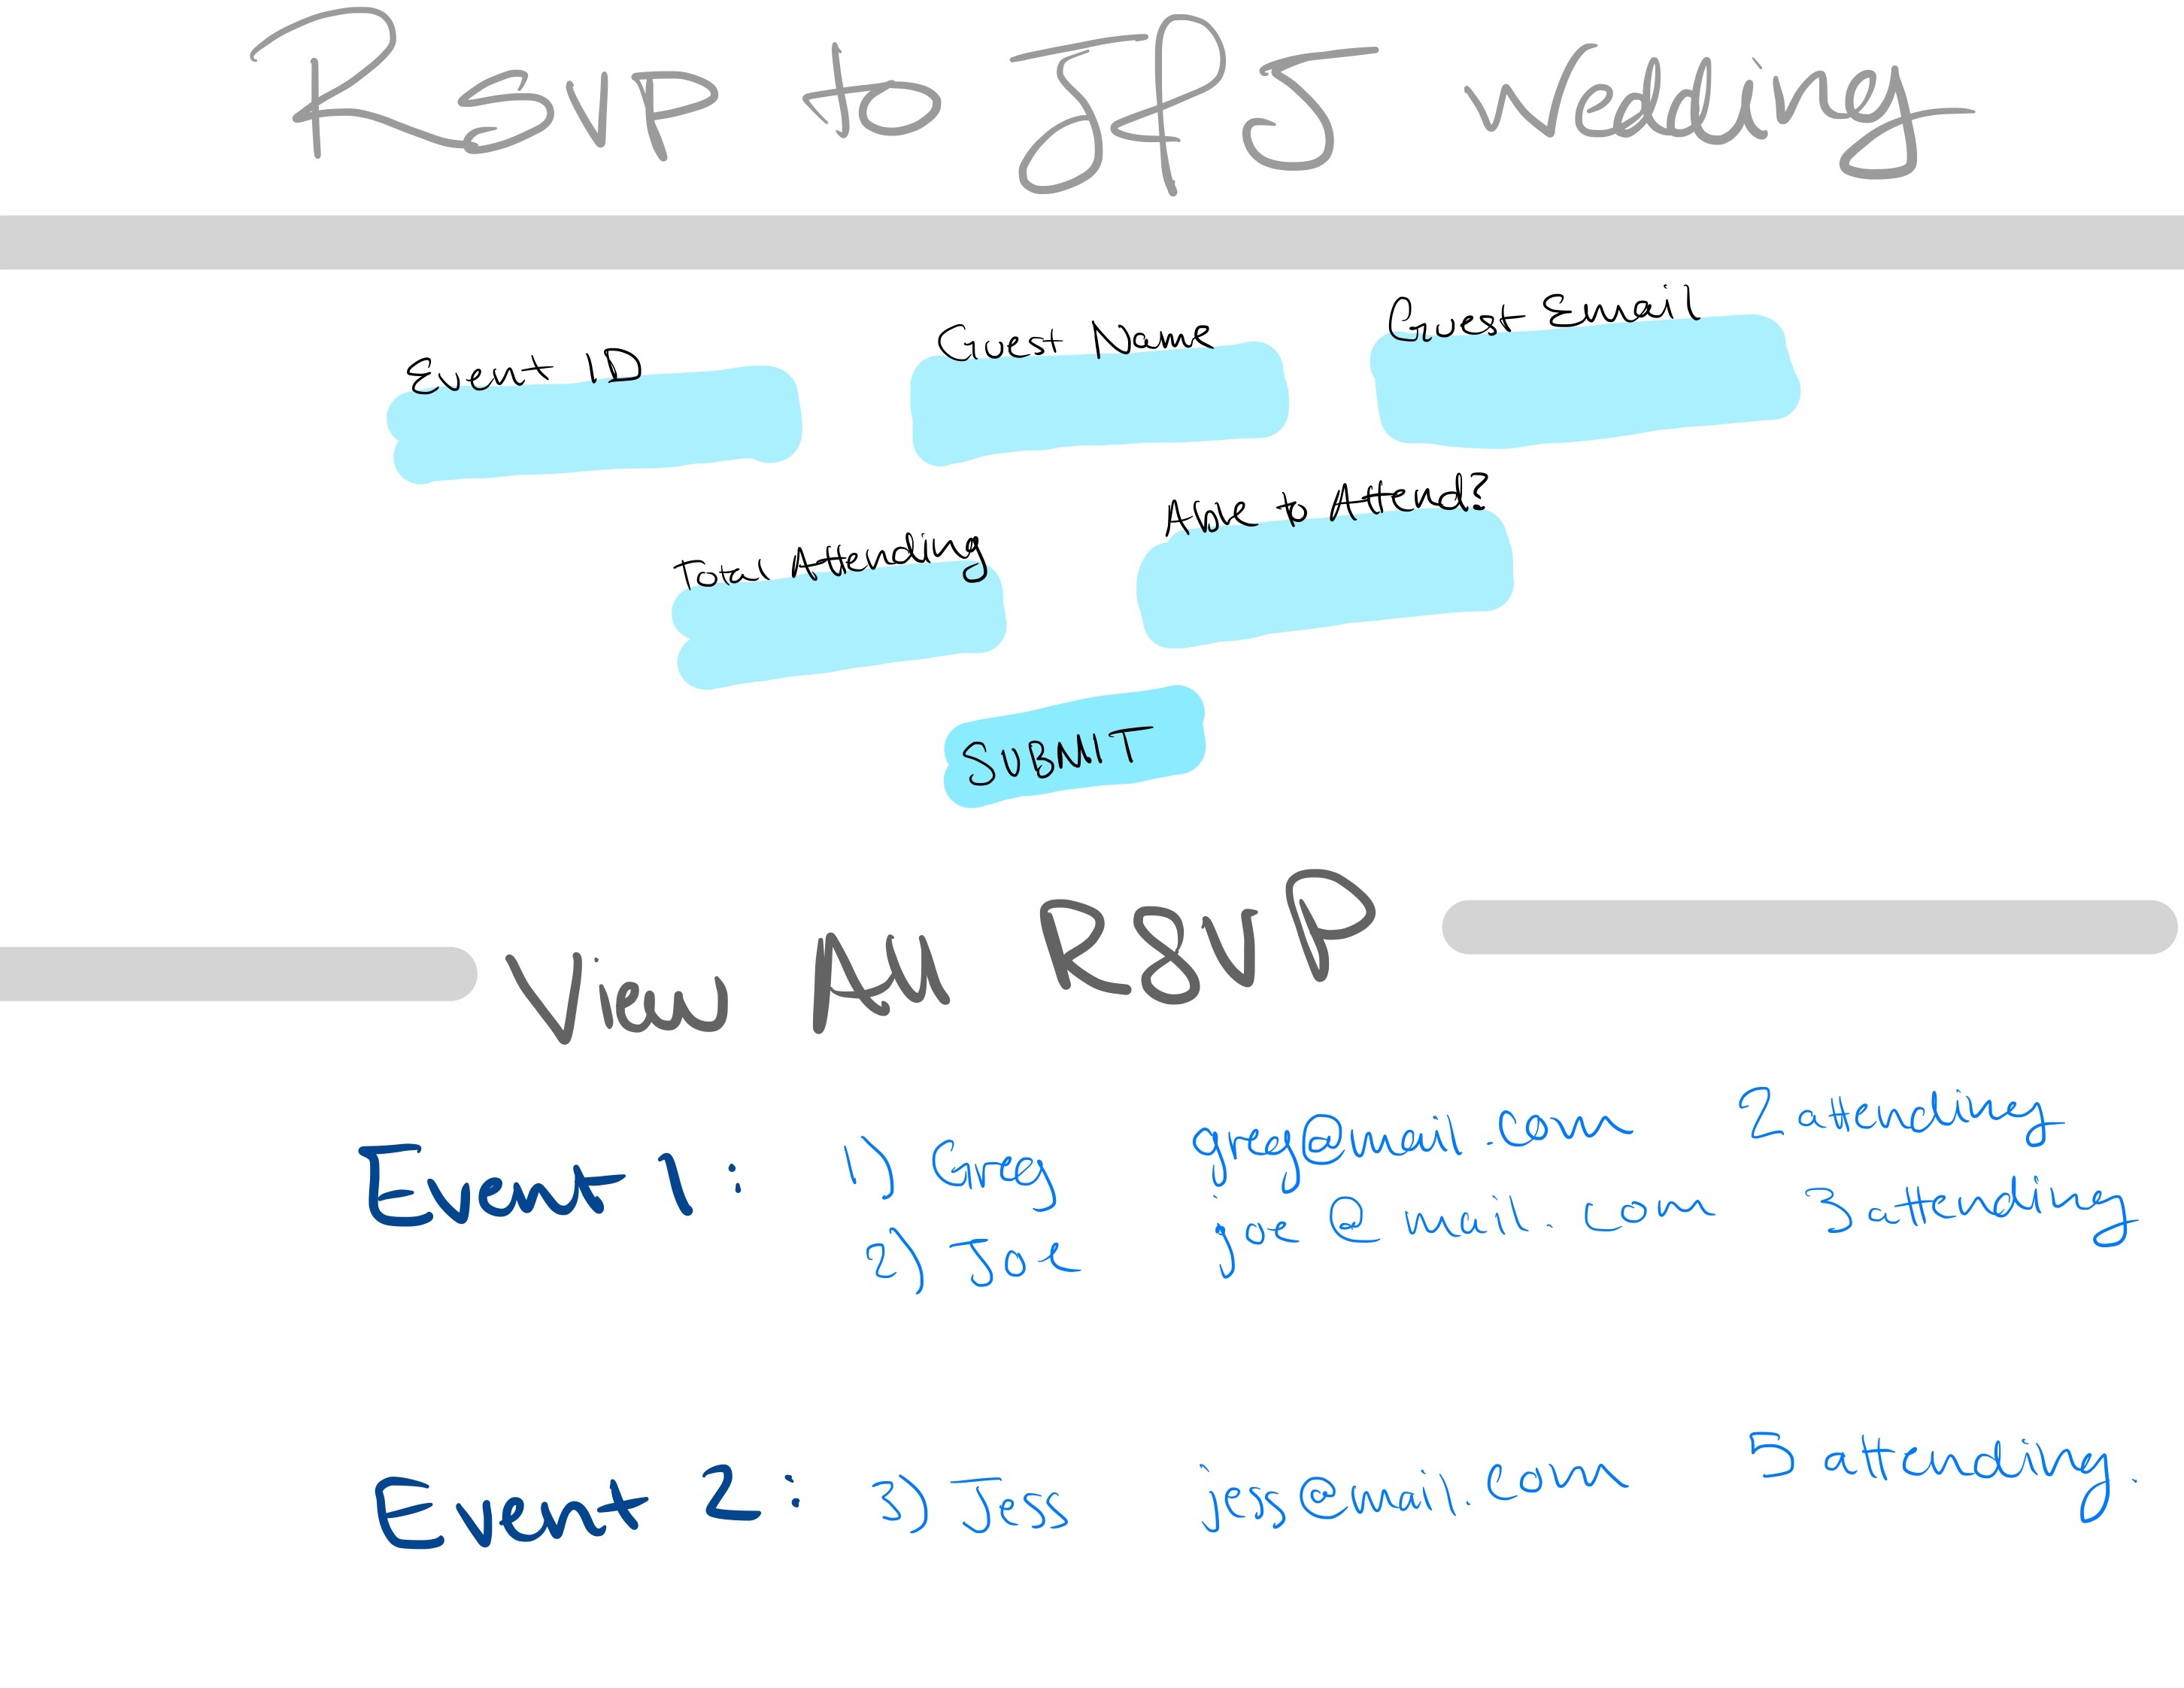 Rsvp to J&S wedding
Event ID
Guest Name
Guest Email
Total Attending
Able to Attend?
SUBMIT
View All RSVP
Event 1: 1) Greg greg@mail.com 2 attending
2) Joe joe@mail.com 3 attending
Event 2: 3) Jess jess@mail.com 5 attending.